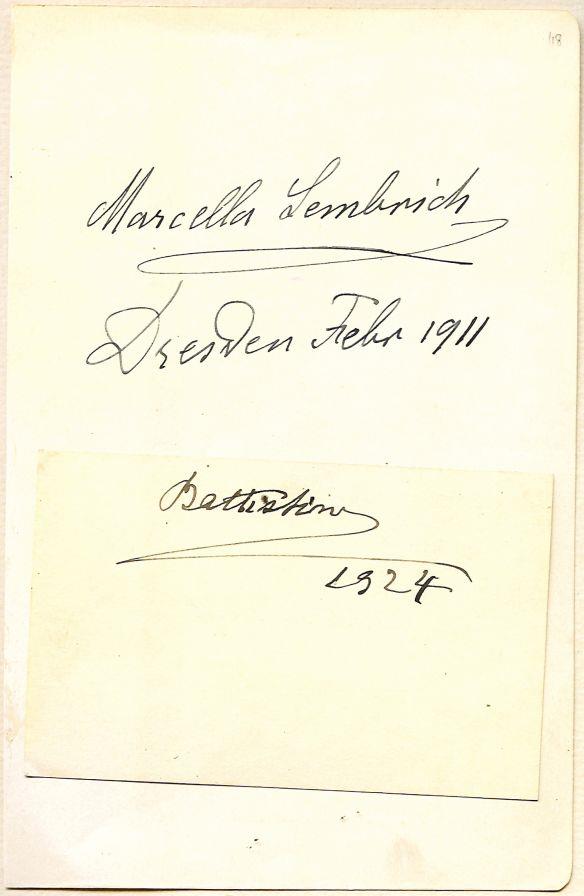 48
Marcella Sembrich
Dresden Febr 1911
Battistini
1924